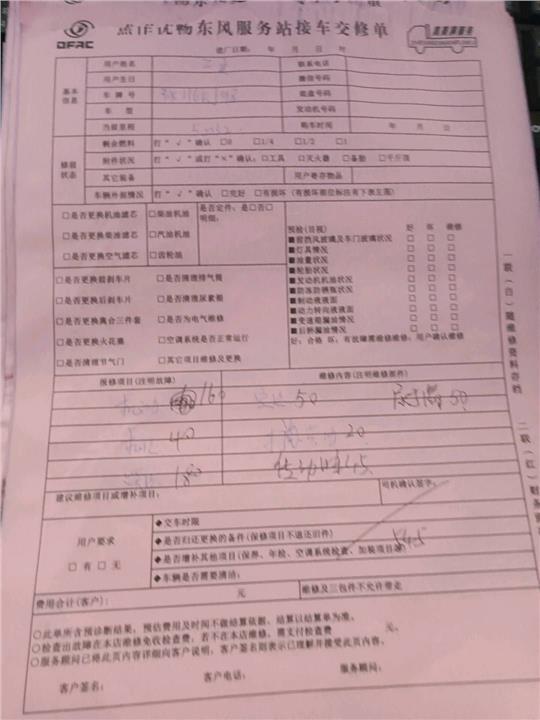 东风服务站接车交修单
DFAC
进厂日期： 年 月 日 时
基本信息
用户姓名 联系电话
用户生日 微信号码
车牌号 底盘号码
车型 发动机号码
当前里程 购车时间 年 月 日
修前状态
剩余燃料 打“√”确认 □0 □1/4 □1/2 □1
附件状况 打“√”或打“×”确认：□工具 □灭火器 □备胎 □千斤顶
其它装备 用户寄存物品
车辆外观情况 打“√”确认 □完好 □有损坏（有损坏部位标注有下表主图）
□是否更换机油滤芯 □柴油机油 是否定件：是□否□
明细：
□是否更换柴油滤芯 □汽油机油
□是否更换空气滤芯 □齿轮油
预检(目视) 好 坏 维修
■前挡风玻璃及车门玻璃状况 □ □ □
■灯具情况 □ □ □
■油量状况 □ □ □
■轮胎状况 □ □ □
■发动机机油状况 □ □ □
■防冻防锈瓶状况 □ □ □
■制动液液面 □ □ □
■动力转向液液面 □ □ □
■变速箱漏油情况 □ □ □
■后桥漏油情况 □ □ □
好：合格 坏：有故障需维修维修：用户确认维修
□是否更换前刹车片 □是否清理排气筒
□是否更换后刹车片 □是否清理尿素箱
□是否更换离合三件套 □是否为电气维修
□是否更换火花塞 □空调系统是否正常运行
□是否清理节气门 □其它项目维修及更换
报修项目(注明故障) 维修内容(注明维修部件)
160 50 50
40 20
180 45
建议维修项目或增补项目： 司机确认签字：
用户要求
□有 □无
◆交车时限
◆是否归还更换的备件(保修项目不退还旧件)
◆是否增补其他项目(保养、年检、空调系统检查、加装项目等)
545
◆车辆是否需要清洁：
费用合计(客户)： 元 维修及三包件不允许带走
○此单所含预诊断结果，预估费用及时间不做结算依据，结算以结算单为准。
○检查出故障在本店维修免收检查费，若不在本店维修，需支付检查费 元。
○服务顾问已将此页内容详细向客户说明，客户签名则表示已理解并接受此页内容。
客户签名： 客户电话： 服务顾问：
一联（白）随维修资料存档
二联（红）财务